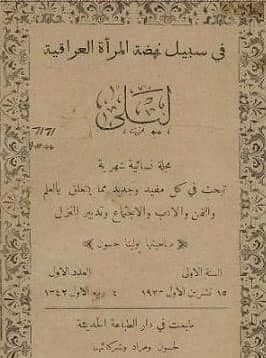 في سبيل نهضة المرأة العراقية
ليلى
مجلة نسائية شهرية
تبحث في كل مفيد وجديد مما يتعلق بالعلم
والفن والادب والاجتماع وتدبير المنزل
صاحبتها بولينا حسون
السنة الاولى
العدد الاول
١٥ تشرين الاول ١٩٢٣
٤ ربيع الاول ١٣٤٢
طبعت في دار الطباعة الحديثة
لحسون ومراد وشركائهما